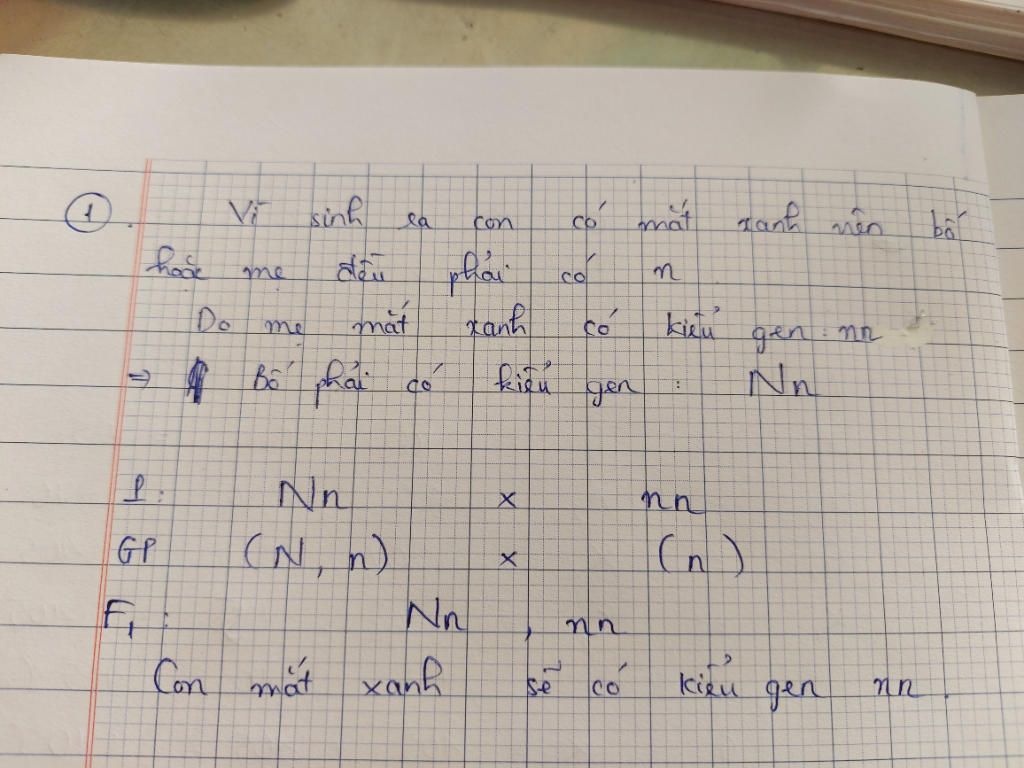 1. Vì sinh ra con có mắt xanh nên bố
hoặc mẹ đều phải có n
Do mẹ mắt xanh có kiểu gen : nn
=> Bố phải có kiểu gen : Nn
P : Nn x nn
GP (N, n) x (n)
F1 : Nn , nn
Con mắt xanh sẽ có kiểu gen nn.